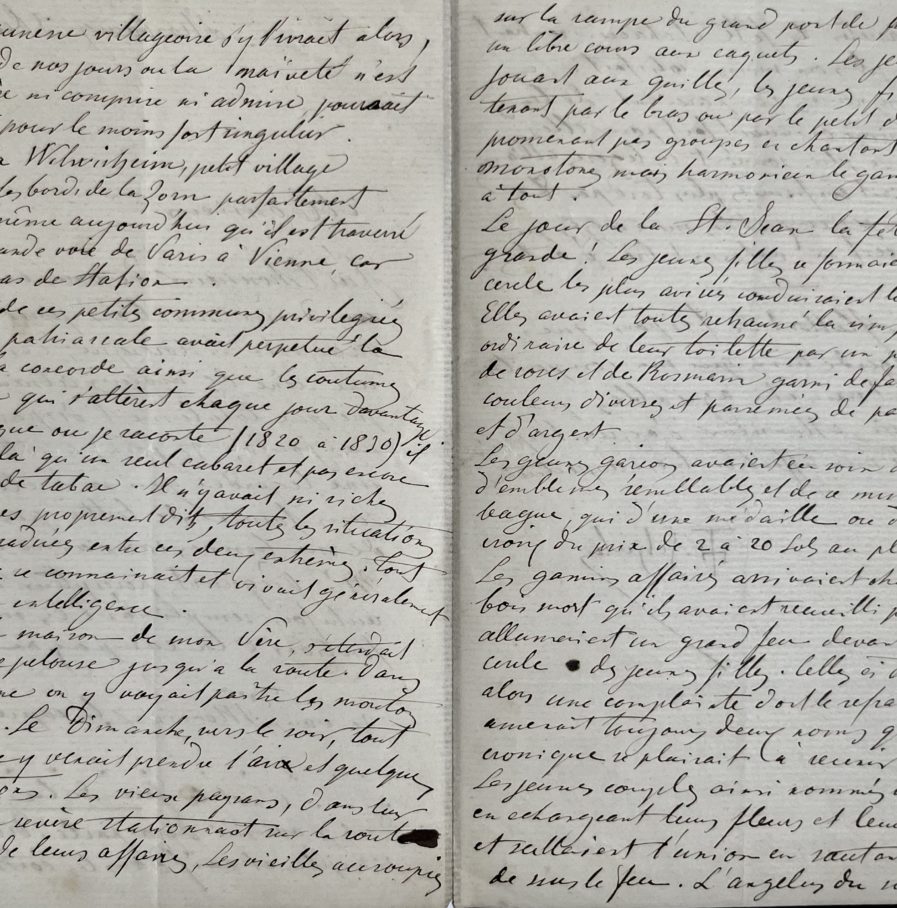 villageoise s'y livrait alors,
de nos jours ou la naïveté n'est
ni comprise ni admise pourrait
pour le moins fort singulier.
Wilwisheim, petit village
les bords de la Zorn parfaitement
même aujourd'hui qu'il est traversé
voie de Paris à Vienne, car
pas de Station.
de ces petites communes privilégiées
patriarcale avait perpetué la
concorde ainsi que les coutumes
qui s'altèrent chaque jour davantage.
que ou je raconte (1820 à 1830) il
là qu'un seul cabaret et pas encore
de tabac. Il n'y avait ni riches
proprement dits, toutes les situations
entre ces deux extrèmes. Tout
se connaissait et vivait généralement
intelligence.
maison de mon Père, s'étendait
pelouse jusqu'a la route. Dans
on y voyait paître les moutons
. Le Dimanche, vers le soir, tout
y venait prendre l'air et quelques
. Les vieux paysans, dans leur
stationnant sur la route
de leurs affaires, Les vieilles accroupies
sur la rampe du grand port de
un libre cours aux caquets. Les
jouant aux quilles, les jeunes
tenant par le bras ou par le petit
promenant par groupes en chantant
monotones mais harmonieux le
à tout.
Le jour de la St. Jean la
grande! Les jeunes filles se
cercle les plus avisées conduisaient
Elles avaient toutes rehaussé la
ordinaire de leur toilette par un
de roses et de Rosmarin garni de
couleurs diverses et parsemées de
et d'argent.
Les jeunes garçons avaient eu soin
d'emblèmes semblables et de se
bague, qui d'une médaille ou
croix du prix de 2 à 20 Sols au
Les gamins affairés arrivaient
bois mort qu'ils avaient recueilli
allumaient un grand feu
cercle des jeunes filles. Celles ci
alors une complainte dont le
amenait toujours deux noms
cronique se plaisait à
Les jeunes couples ainsi nommés
en echangeant leurs fleurs et
et scellaient l'union en
dessus le feu. L'angelus du